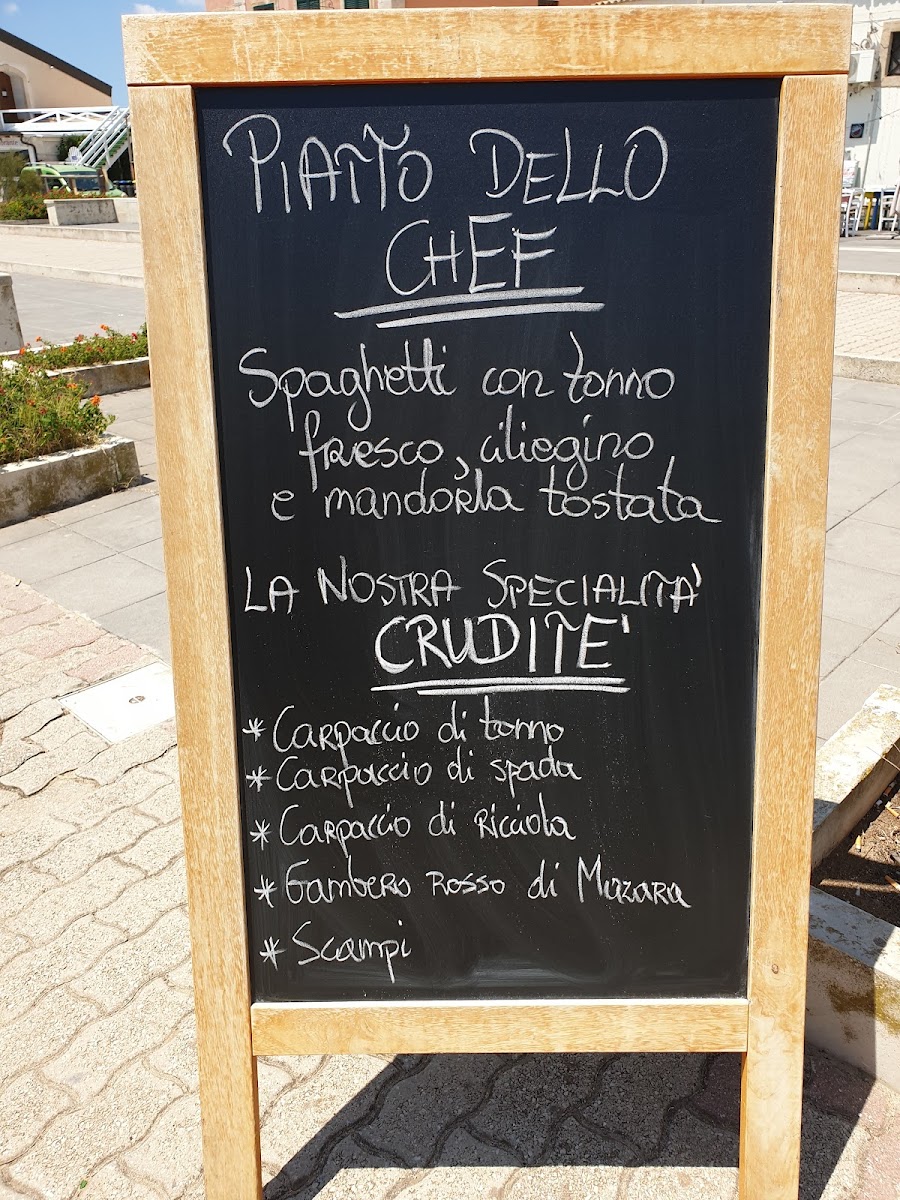 PIATTO DELLO
CHEF
Spaghetti con tonno
fresco, ciliegino
e mandorla tostata
LA NOSTRA SPECIALITA'
CRUDITE'
* Carpaccio di tonno
* Carpaccio di spada
* Carpaccio di Ricciola
* Gambero rosso di Mazara
* Scampi